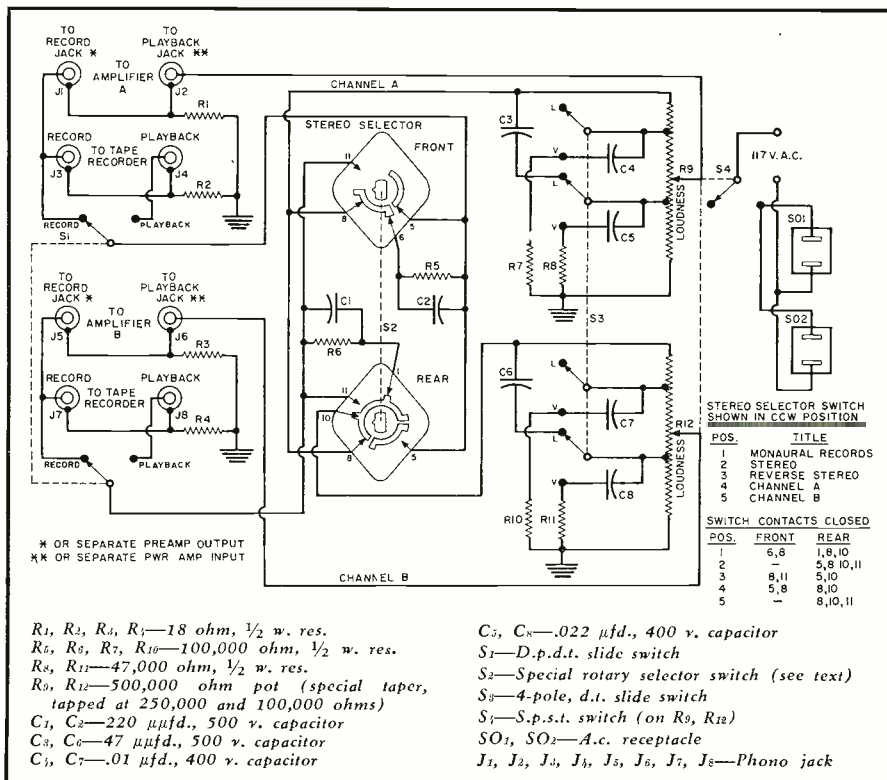 TO RECORD JACK *
TO PLAYBACK JACK **
TO AMPLIFIER A
J1
J2
R1
RECORD
PLAYBACK
TO TAPE RECORDER
J3
J4
R2
RECORD
PLAYBACK
S1
TO RECORD JACK *
TO PLAYBACK JACK **
TO AMPLIFIER B
J5
J6
R3
RECORD
PLAYBACK
TO TAPE RECORDER
J7
J8
R4
RECORD
PLAYBACK
* OR SEPARATE PREAMP OUTPUT
** OR SEPARATE PWR AMP INPUT
CHANNEL A
STEREO SELECTOR
FRONT
11
8
6
5
R5
C1
C2
S2
R6
1
REAR
11
10
8
5
CHANNEL B
C3
L
V
C4
L
V
C5
R7
R8
R9
LOUDNESS
S4
117 V. A.C.
SO1
SO2
S3
C6
L
V
C7
L
V
C8
R10
R11
R12
LOUDNESS
STEREO SELECTOR SWITCH
SHOWN IN CCW POSITION
POS. TITLE
1 MONAURAL RECORDS
2 STEREO
3 REVERSE STEREO
4 CHANNEL A
5 CHANNEL B
SWITCH CONTACTS CLOSED
POS. FRONT REAR
1 6,8 1,8,10
2 - 5,8 10,11
3 8,11 5,10
4 5,8 8,10
5 - 8,10,11
R1, R2, R3, R4—18 ohm, 1/2 w. res.
R5, R6, R7, R10—100,000 ohm, 1/2 w. res.
R8, R11—47,000 ohm, 1/2 w. res.
R9, R12—500,000 ohm pot (special taper,
tapped at 250,000 and 100,000 ohms)
C1, C2—220 μμfd., 500 v. capacitor
C3, C6—47 μμfd., 500 v. capacitor
C4, C7—.01 μfd., 400 v. capacitor
C5, C8—.022 μfd., 400 v. capacitor
S1—D.p.d.t. slide switch
S2—Special rotary selector switch (see text)
S3—4-pole, d.t. slide switch
S4—S.p.s.t. switch (on R9, R12)
SO1, SO2—A.c. receptacle
J1, J2, J3, J4, J5, J6, J7, J8—Phono jack